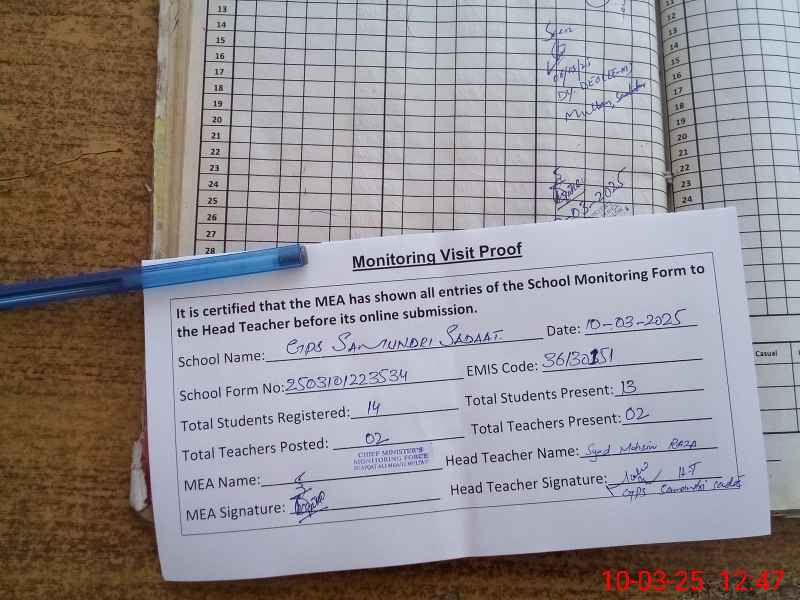 13
14
15
16
17
18
19
20
21
22
23
24
25
26
27
28
11
12
13
14
15
16
17
18
19
20
21
22
23
24
Seen
DY. DEO
03-2025
Casual
Monitoring Visit Proof
It is certified that the MEA has shown all entries of the School Monitoring Form to
the Head Teacher before its online submission.
School Name: GPS SAMUNDRI SADAAT. Date: 10-03-2025
School Form No: 2503101223534 EMIS Code: 36130151
Total Students Registered: 14 Total Students Present: 13
Total Teachers Posted: 02 Total Teachers Present: 02
CHIEF MINISTER'S
MONITORING FORCE
MEA Name: Head Teacher Name: Syed Mohsin RAZA
MEA Signature: Head Teacher Signature: H.T
GPS Samundri sadat
10-03-25 12:47